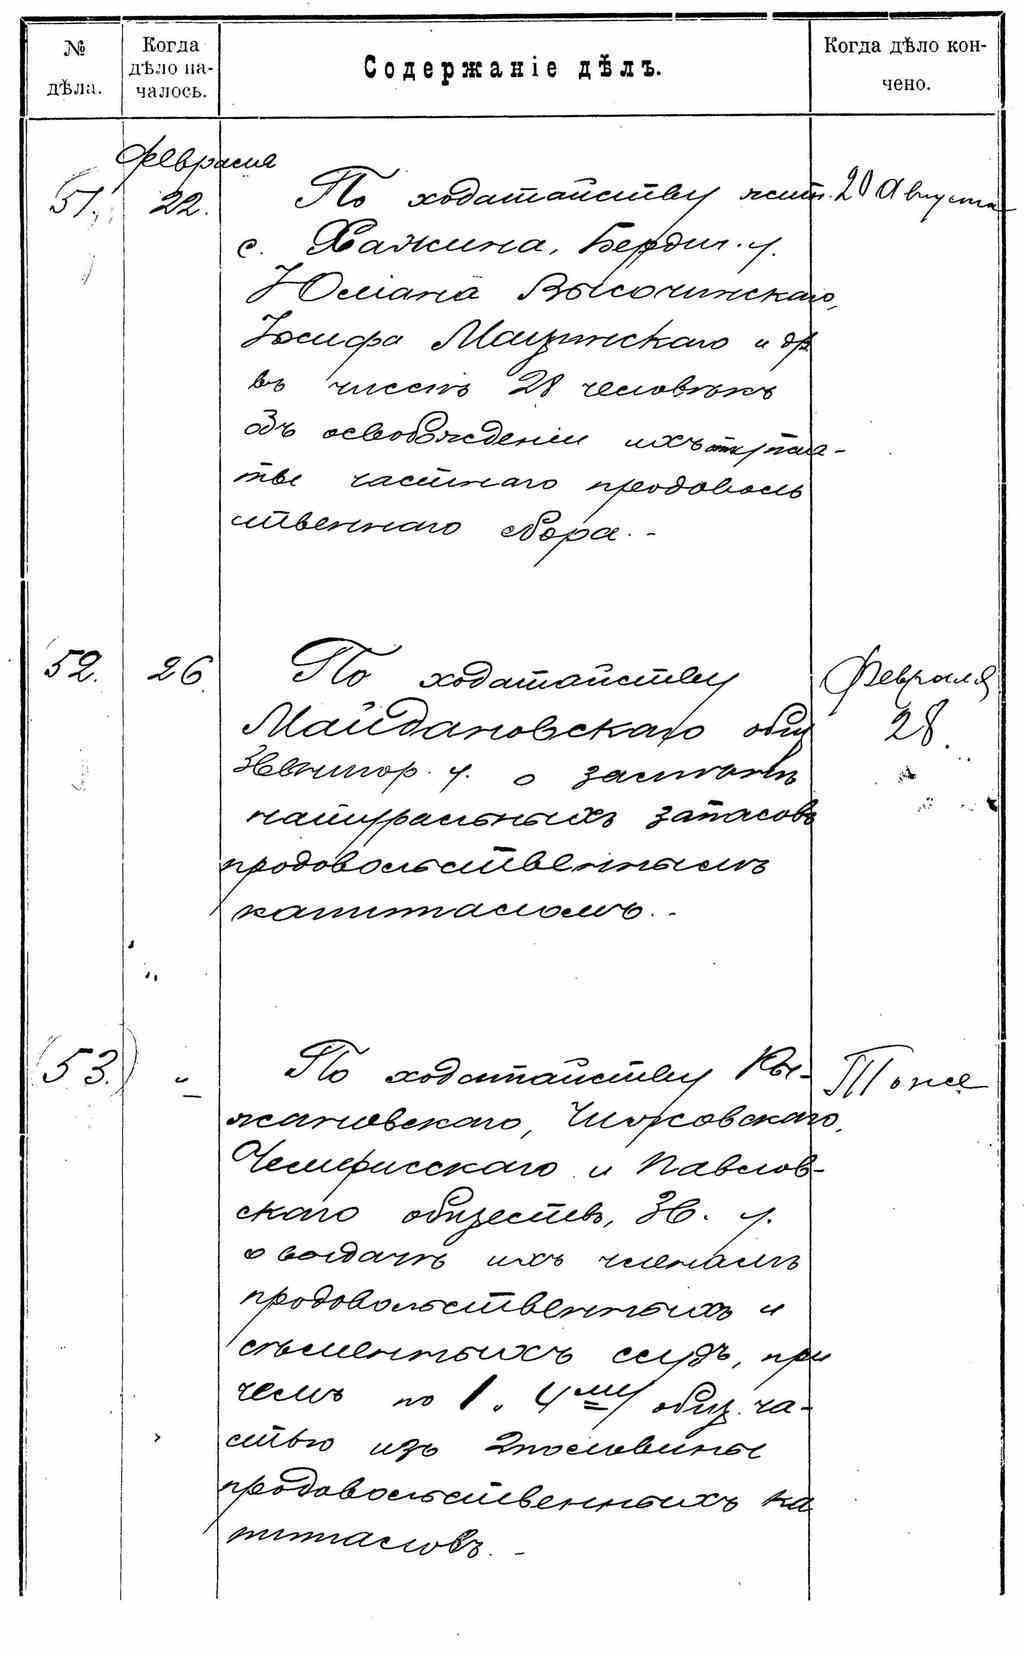 № дѣла.
Когда дѣло началось.
Содержаніе дѣлъ.
Когда дѣло кончено.
Февраля
51. 22. По ходатайству жит. 20 Августа
с. Хажина, Бердич. у.
Юліана Высочинскаго,
Іосифа Мацинскаго и др
въ числѣ 28 человѣкъ
объ освобожденіи ихъ отъ упла-
ты частнаго продоволь
ственнаго сбора. -
52. 26. По ходатайству Февраля
Майдановскаго общ 28.
Звенигор. у. о замѣнѣ
натуральныхъ запасовъ
продовольственнымъ
капиталомъ. -
53. " По ходатайству Кы- Тоже
жановскаго, Чижовскаго,
Чемерисскаго и Павлов-
скаго обществъ, Зв. у.
о выдачѣ ихъ членамъ
продовольственныхъ и
сѣменныхъ ссудъ, при
чемъ по 1. 4му общ. ча-
стью изъ 2 половины
продовольственныхъ ка
питаловъ. -